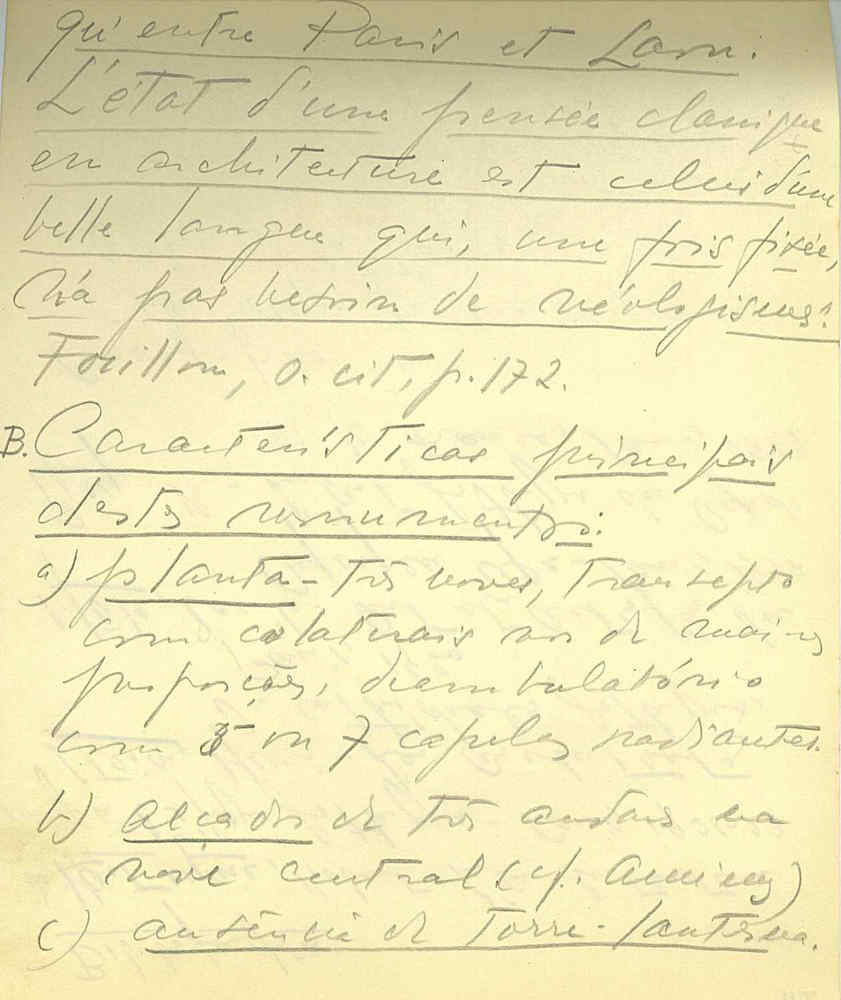 qu'entre Paris et Laon.
L'état d'une pensée classique
en architecture est celui d'une
belle langue qui, une fois fixée,
n'a pas besoin de néologismes".
Focillon, o. cit., p. 172.
B. Características principais
destes monumentos:
a) planta - três naves, transepto
com colaterais nos de maiores
proporções, deambulatório
com 5 ou 7 capelas radiantes.
b) alçados de três andares na
nave central (cf. Amiens)
c) ausência de torre-lanterna.